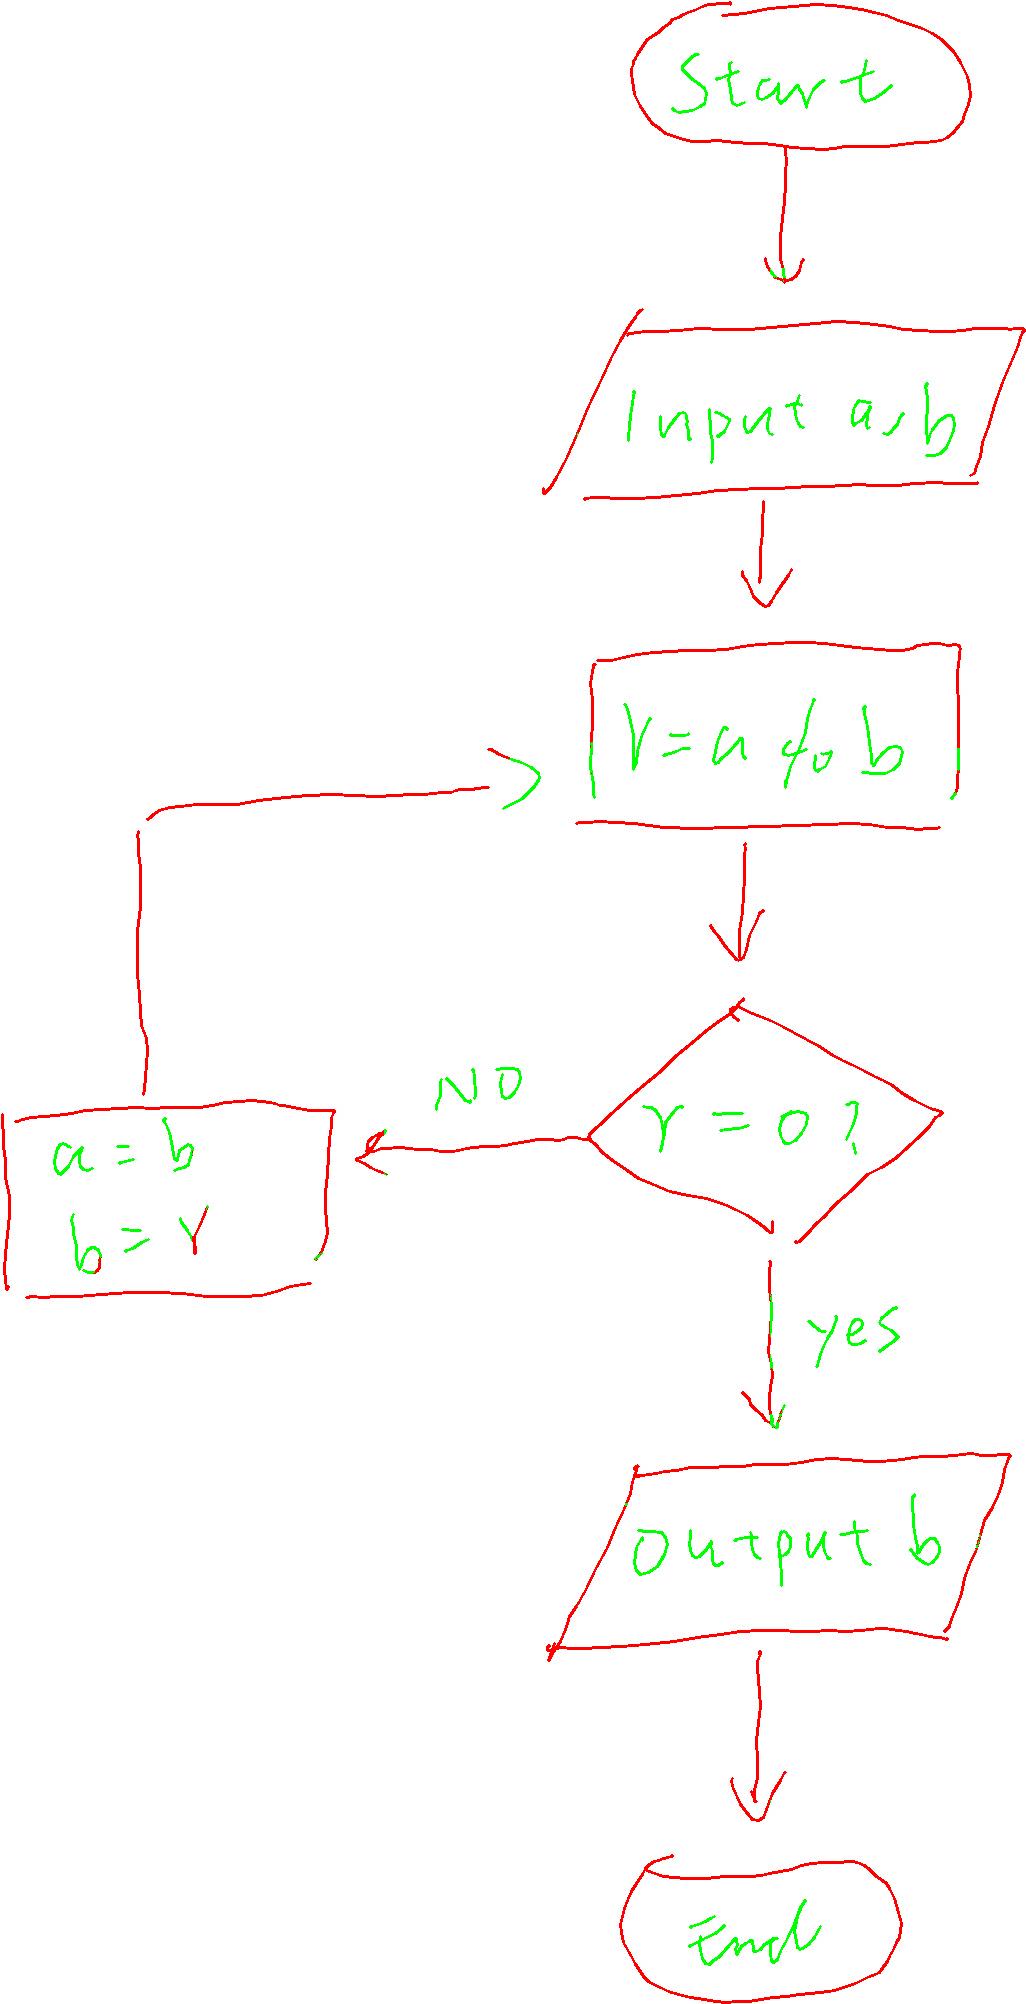 Start
Input a, b
r = a % b
r = 0 ?
NO
a = b
b = r
yes
Output b
End